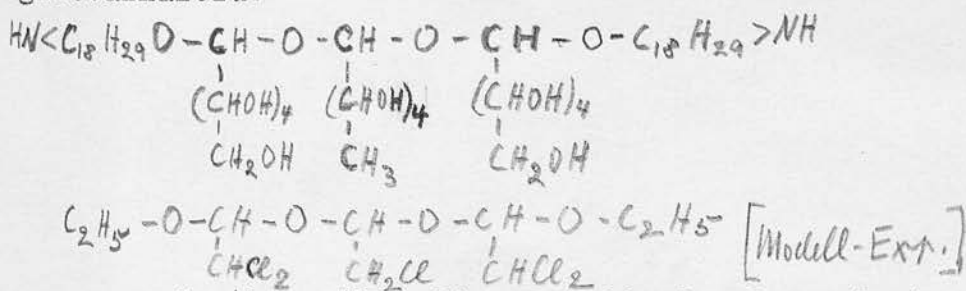 HN<C18H29O-CH-O-CH-O-CH-O-C18H29>NH
(CHOH)4 (CHOH)4 (CHOH)4
CH2OH CH3 CH2OH
C2H5-O-CH-O-CH-O-CH-O-C2H5 [Modell-Exp.]
CHCl2 CH2Cl CHCl2